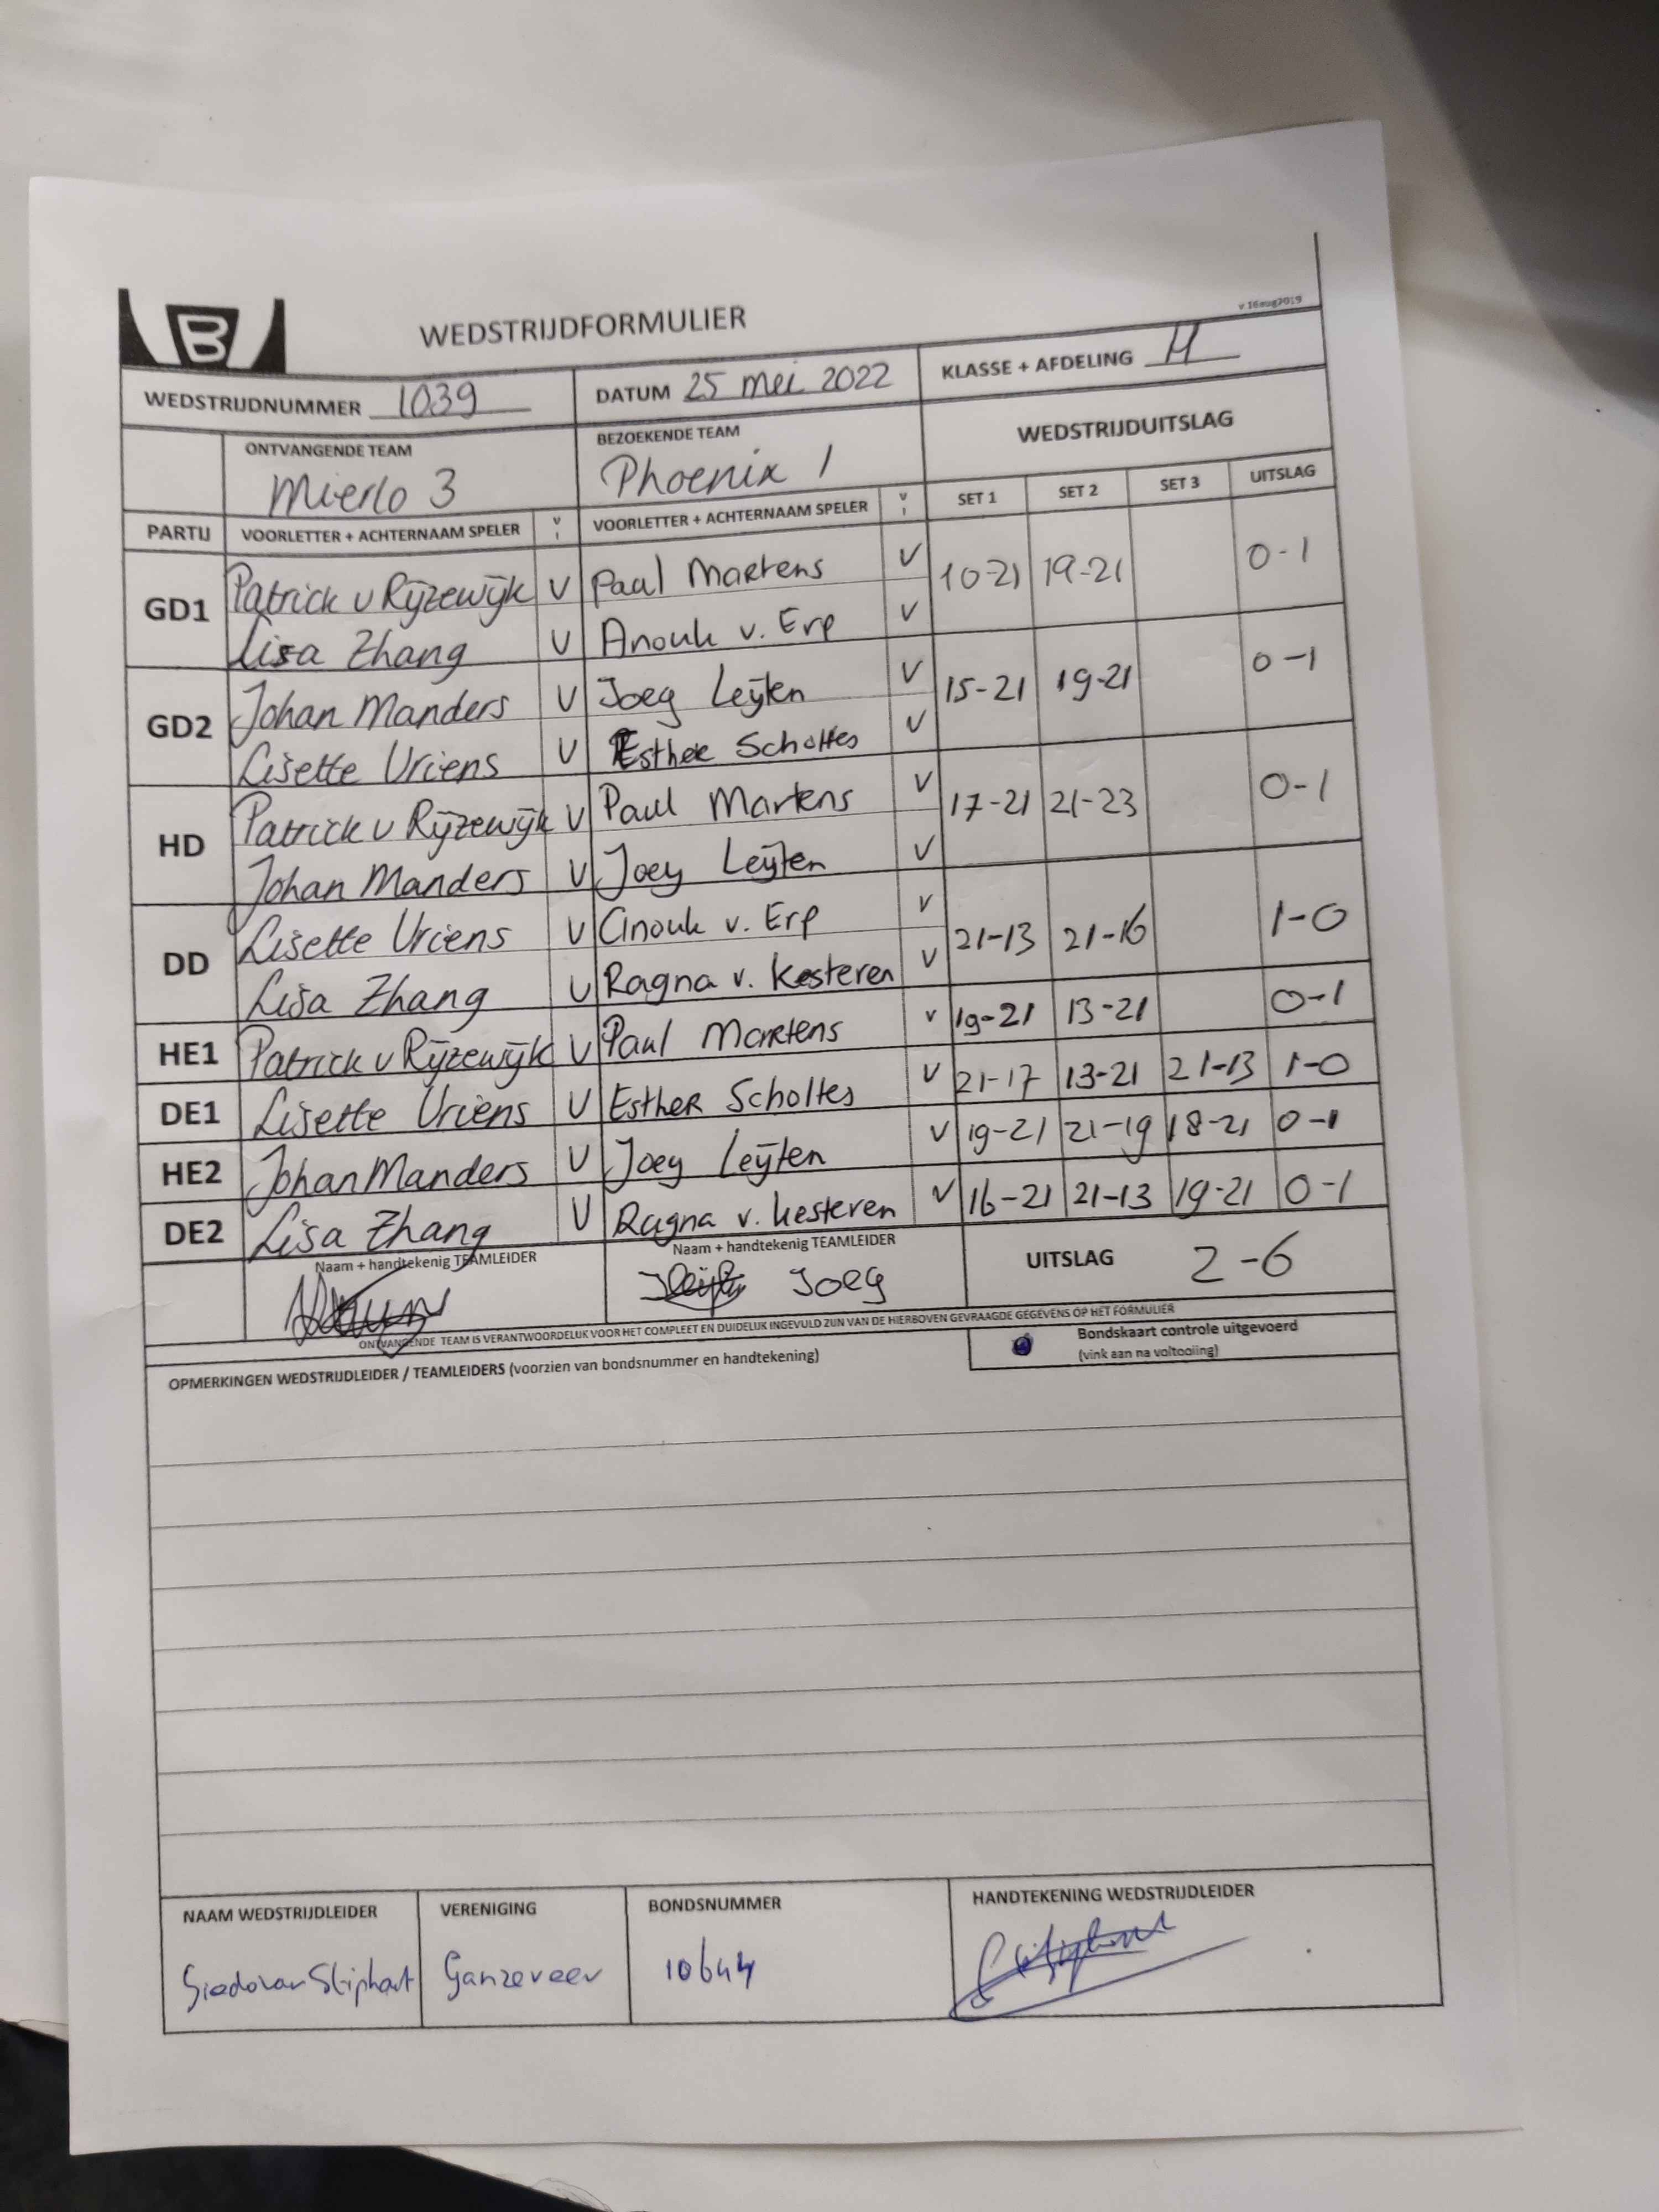 B
v.16aug2019
WEDSTRIJDFORMULIER
WEDSTRIJDNUMMER 1039 DATUM 25 mei 2022 KLASSE + AFDELING H
ONTVANGENDE TEAM BEZOEKENDE TEAM WEDSTRIJDUITSLAG
Mierlo 3 Phoenix 1
PARTIJ VOORLETTER + ACHTERNAAM SPELER V I VOORLETTER + ACHTERNAAM SPELER V I SET 1 SET 2 SET 3 UITSLAG
GD1 Patrick v Rijzewijk V Paul Martens V 10-21 19-21 0-1
Lisa Zhang V Anouk v. Erp V
GD2 Johan Manders V Joey Leijten V 15-21 19-21 0-1
Lisette Vriens V Esther Scholtes V
HD Patrick v Rijzewijk V Paul Martens V 17-21 21-23 0-1
Johan Manders V Joey Leijten V
DD Lisette Vriens V Anouk v. Erp V 21-13 21-16 1-0
Lisa Zhang V Ragna v. Kesteren V
HE1 Patrick v Rijzewijk V Paul Martens V 19-21 13-21 0-1
DE1 Lisette Vriens V Esther Scholtes V 21-17 13-21 21-13 1-0
HE2 Johan Manders V Joey Leijten V 19-21 21-19 18-21 0-1
DE2 Lisa Zhang V Ragna v. Kesteren V 16-21 21-13 19-21 0-1
Naam + handtekenig TEAMLEIDER Naam + handtekenig TEAMLEIDER UITSLAG 2-6
Joey
ONTVANGENDE TEAM IS VERANTWOORDELIJK VOOR HET COMPLEET EN DUIDELIJK INGEVULD ZIJN VAN DE HIERBOVEN GEVRAAGDE GEGEVENS OP HET FORMULIER
Bondskaart controle uitgevoerd
(vink aan na voltooiing)
OPMERKINGEN WEDSTRIJDLEIDER / TEAMLEIDERS (voorzien van bondsnummer en handtekening)
NAAM WEDSTRIJDLEIDER VERENIGING BONDSNUMMER HANDTEKENING WEDSTRIJDLEIDER
Ganzeveer 10644